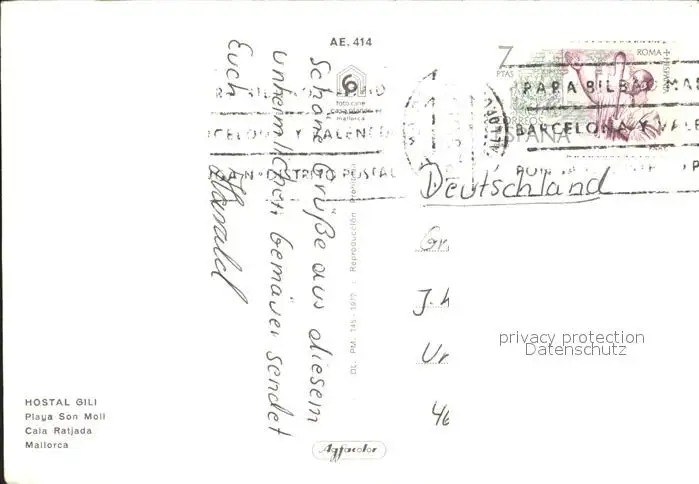 AE. 414
foto cine
casa planas
mallorca
7
PTAS
ROMA + HISPANIA
CORREOS
ESPAÑA
PARA BILBAO MAD
BARCELONA Y VALE
CELONA Y VALENCIA
DISTRITO POSTAL
Schöne Grüße aus diesem
unheimlichen Gemäuer sendet
Euch
Harald
Deutschland
Gr.
J. h
Ur
46
DL. PM. 145-1972 - Reproducción Prohibida
privacy protection
Datenschutz
HOSTAL GILI
Playa Son Moll
Cala Ratjada
Mallorca
Agfacolor